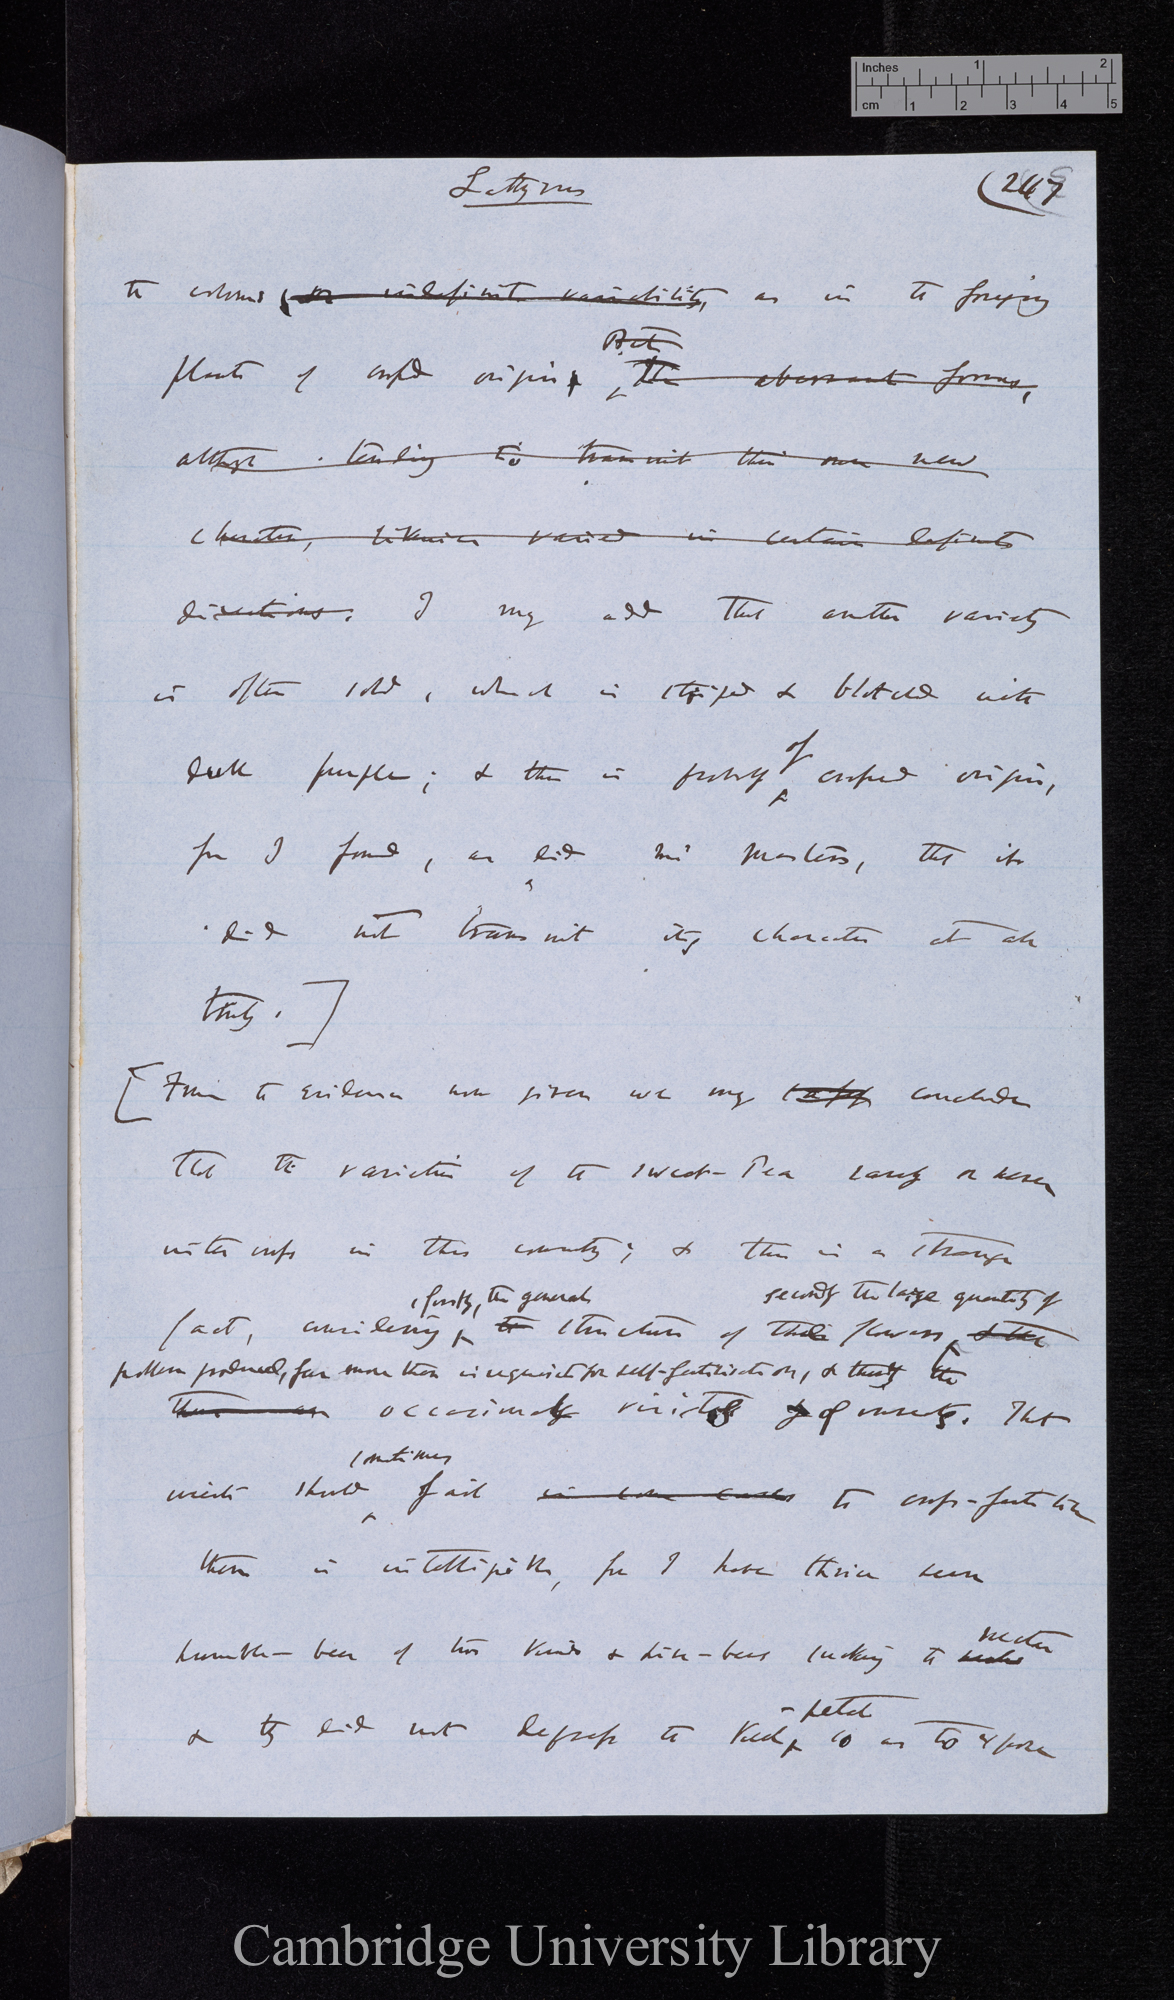 Inches 1 2
cm 1 2 3 4 5
Lathyrus
(247
the colours, or indefinite variability, as in the foregoing
Both
plants of crossed origin, the aberrant forms,
although tending to transmit their own new
character, likewise varied in certain definite
directions. I may add that another variety
is often sold, which is striped & blotched with
dark purple; & this is probably
of
crossed origin,
for I found, as did Mr Masters, that it
did not transmit its character at all
truly. ]
[ From the evidence now given we may safely conclude
that the varieties of the sweet-Pea rarely or never
intercross in this country; & this is a strange
, firstly, the general
secondly the large quantity of
fact, considering the structure of their flowers, & the
pollen produced, far more than is requisite for self-fertilisation, & thirdly the
occasional visits of insects. That
sometimes
insects should fail in some cases to cross-fertilise
them is intelligible, for I have thrice seen
nectar
humble-bees of two kinds & hive-bees sucking the
- petals
& they did not depress the keel so as to expose
Cambridge University Library